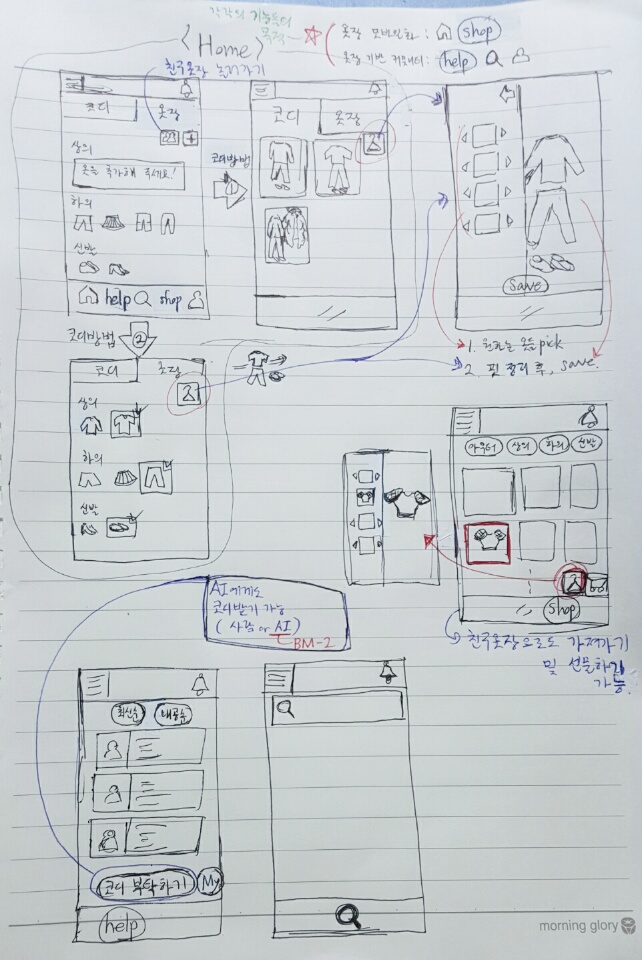 각각의 기능들의
목적
옷장 모바일화 : shop
옷장 기반 커뮤니티 : help
<Home>
친구옷장 놀러가기
코디 옷장
상의
옷을 추가해 주세요!
하의
신발
help shop
코디방법
①
코디 옷장
save
1. 원하는 옷들 pick
2. 핏 정리 후, save.
코디방법
②
코디 옷장
상의
하의
신발
아우터 상의 하의 신발
shop
친구옷장으로도 가져가기
및 선물하기
가능.
AI에게도
코디받기 가능
(사람 or AI)
BM-2
최신순 내공순
코디 부탁하기 My
help
morning glory